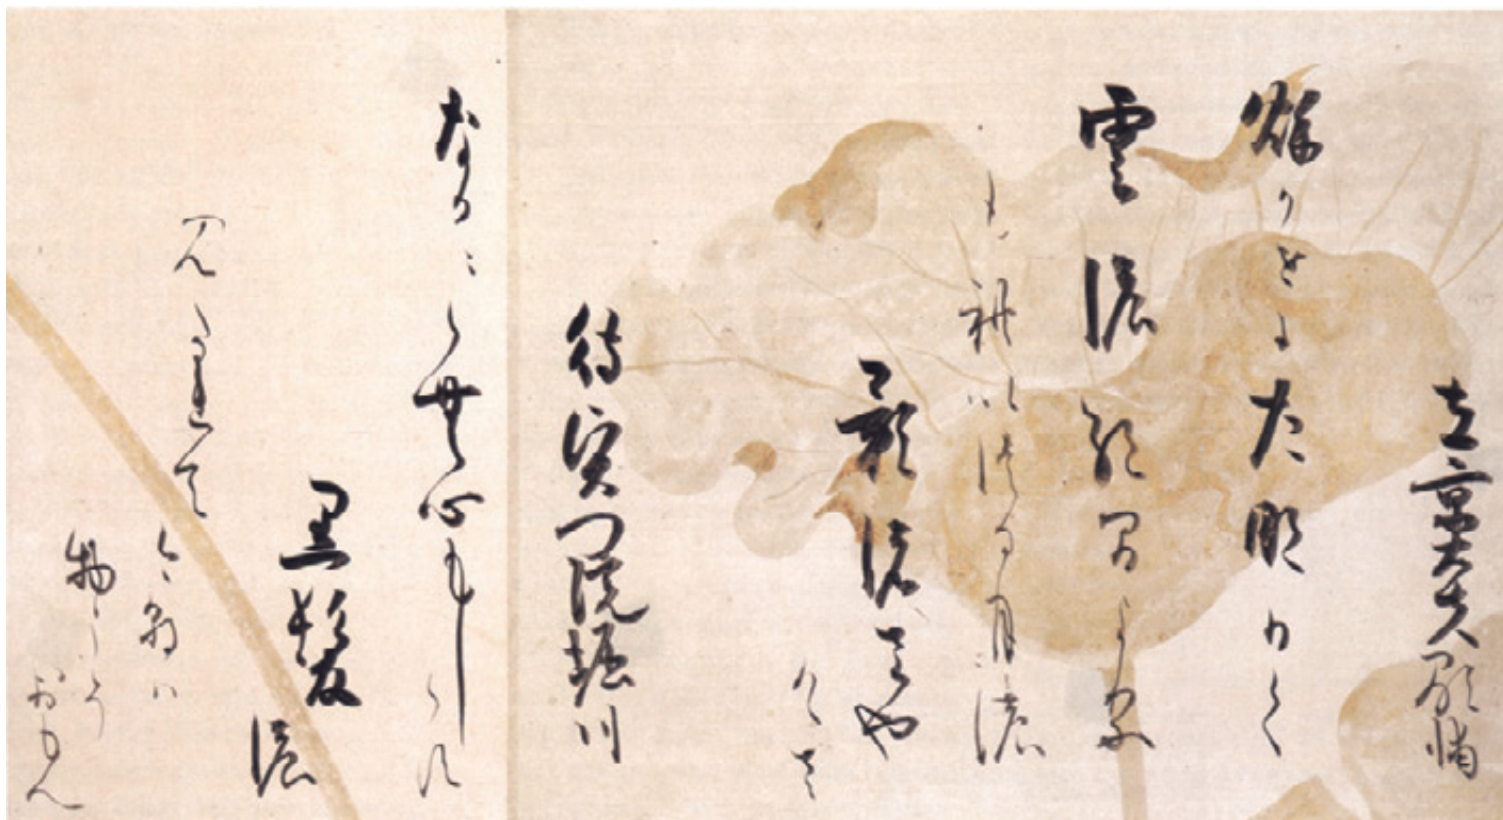 左京大夫顕輔
秋かせにた那ひく
雲濃絶間より
もれいつる月濃
影濃さや
けさ
待賢門院堀川
なかゝら無心もしらす
黒髪濃
みたれて
今朝ハ
物をこそ
おもへ